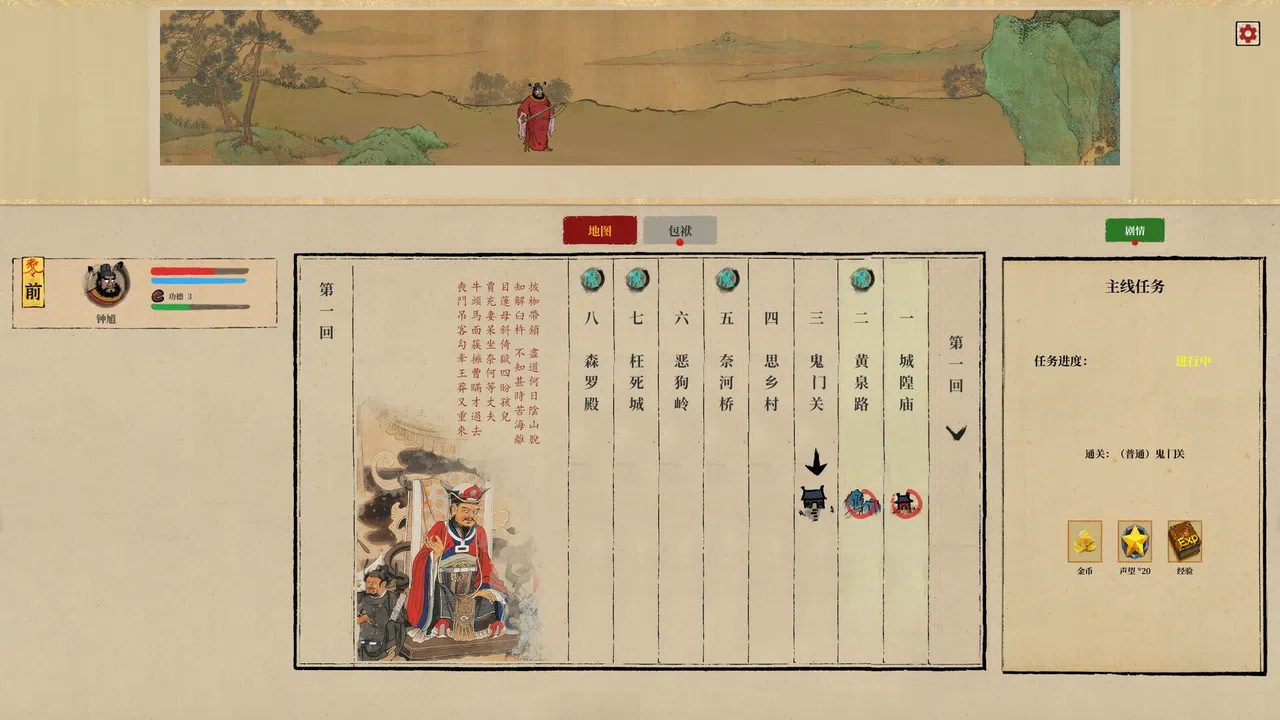 地图
包袱
剧情
前
钟馗
功德 3
第一回
城隍庙
一
黄泉路
二
鬼门关
三
思乡村
四
奈河桥
五
恶狗岭
六
枉死城
七
森罗殿
八
披枷帶鎖 盡道何日陰山脫
知解白杵 不知甚時苦海離
目蓮母斜倚獄四盼孩兒
賈充妻呆坐奈何等丈夫
牛頭馬面簇擁曹瞞才過去
喪門吊客勾牽王莽又重來
第一回
主线任务
任务进度：
进行中
通关：（普通）鬼门关
EXP
金币
声望*20
经验